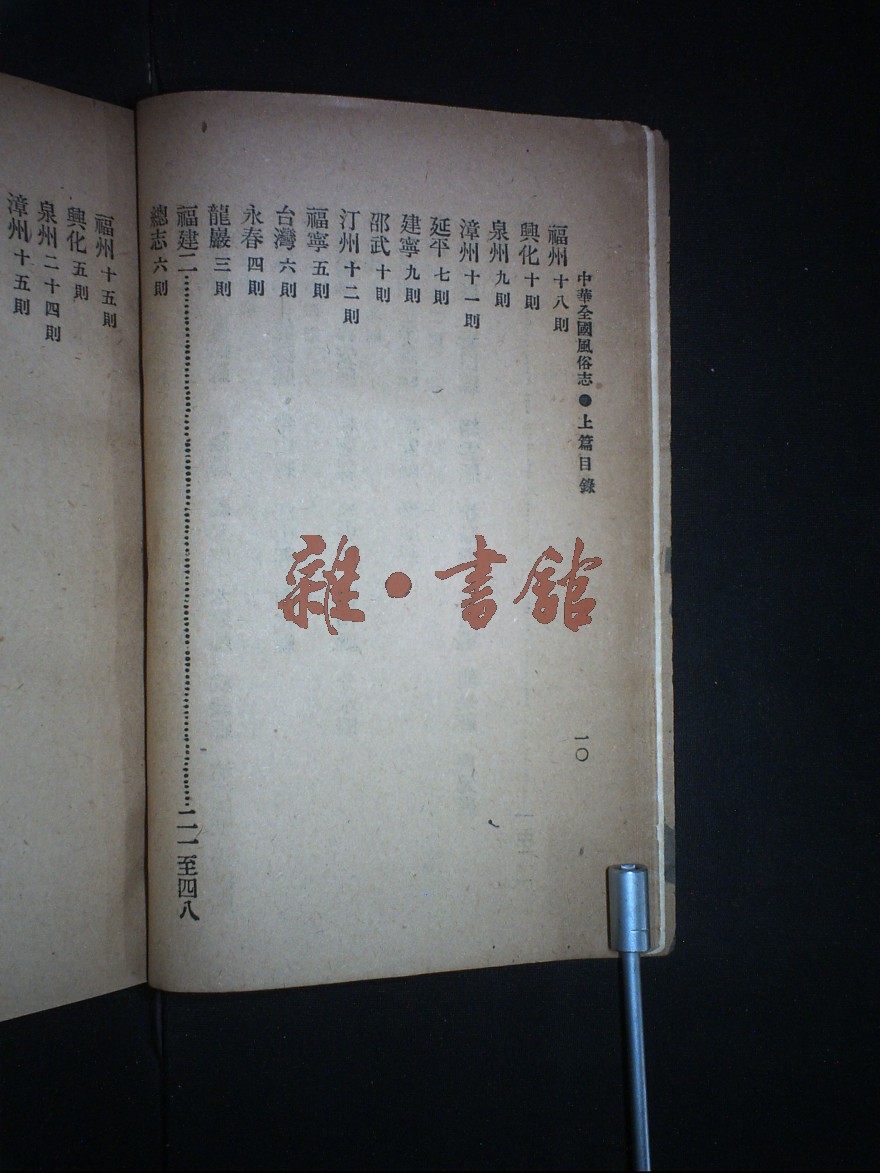 中華全國風俗志●上篇目錄
一〇
福州十八則
興化十則
泉州九則
漳州十一則
延平七則
建寧九則
邵武十則
汀州十二則
福寧五則
台灣六則
永春四則
龍巖三則
福建二……二一至四八
總志六則
福州十五則
興化五則
泉州二十四則
漳州十五則
雜·書館